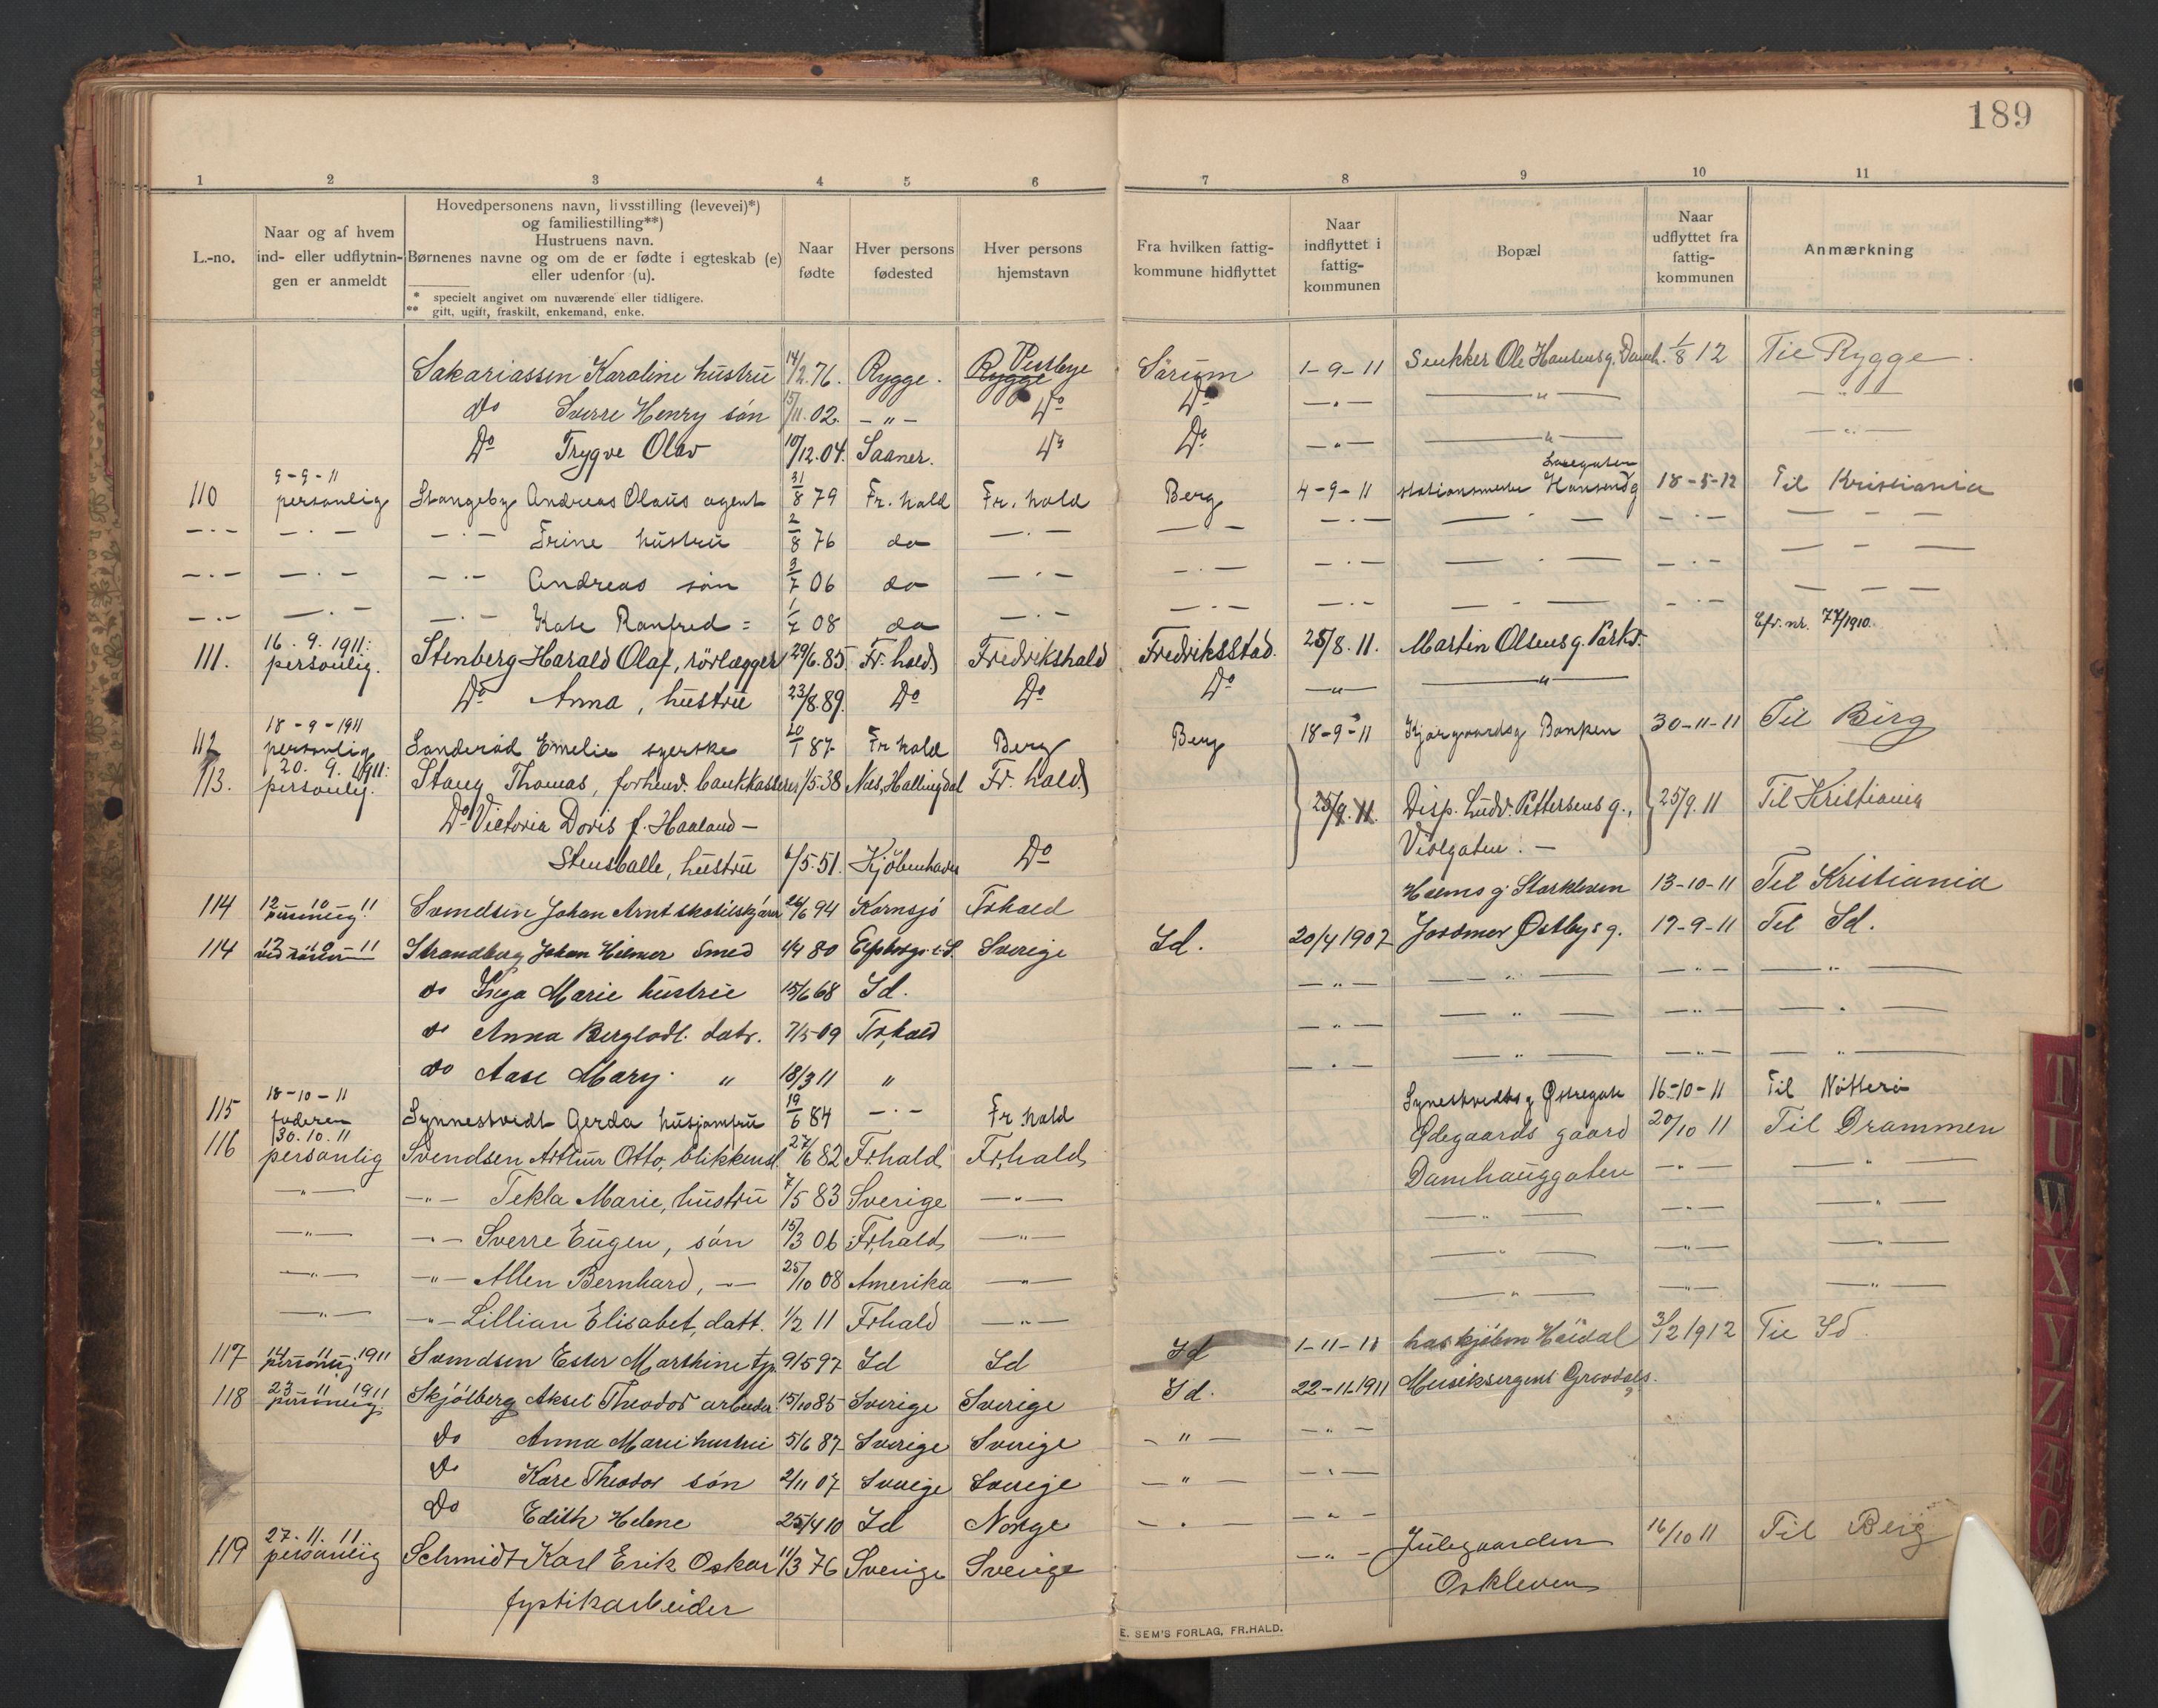 189
1 2 3 4 5 6 7 8 9 10 11
L.-no.
Naar og af hvem
ind- eller udflytnin-
gen er anmeldt
Hovedpersonens navn, livsstilling (levevei)*)
og familiestilling**)
Hustruens navn.
Børnenes navne og om de er fødte i egteskab (e)
eller udenfor (u).
* specielt angivet om nuværende eller tidligere.
** gift, ugift, fraskilt, enkemand, enke.
Naar
fødte
Hver persons
fødested
Hver persons
hjemstavn
Fra hvilken fattig-
kommune hidflyttet
Naar
indflyttet i
fattig-
kommunen
Bopæl
Naar
udflyttet fra
fattig-
kommunen
Anmærkning
Sakariassen Karoline hustru 14/2.76. Rygge. Rygge Vestbye Sørum 1-9-11 Snekker Ole Hansens g. Damh. 1/8 12 Til Rygge.
do Sverre Henry søn 15/11.02. -"- Do Do -"- -"- -"-
Do Trygve Olav 10/12.04. Saaner. Do Do -"- -"- -"-
110 9-9-11 personlig Stangeby Andreas Olaus agent 31/8 79 Fr.hald Fr.hald Berg 4-9-11 stationsmester Hansens g 18-5-12 Til Kristiania
-"- -"- -"- Trine hustru 2/8 76 do -"- -"- -"- -"- -"- -"-
-"- -"- -"- Andreas søn 3/7 06 do -"- -"- -"- -"- -"- -"-
-"- -"- -"- Kate Ranfred = 1/7 08 do -"- -"- -"- -"- -"- -"-
111. 16.9.1911: personlig. Stenberg Harald Olaf, rörlægger 29/6.85. Fr.hald Fredrikshald Fredriksstad. 25/8.11. Martin Olsens g. Parkv. Efr. nr. 77/1910.
Do Anna, hustru 23/8.89. Do Do Do -"- -"-
112 18-9-1911 personlig Sanderød Emelie syerske 20/1 87 Fr hald Berg Berg 18-9-11 Kjærgaardsg Banken 30-11-11 Til Berg
113. 20.9.1911: personlig. Stang Thomas, forhenv. bankkasserer 1/5.38 Næs, Hallingdal Fr.hald. 25/9.11. Disp. Ludv. Pettersens g., 25/9.11 Til Kristiania
Do Victoria Doris f. Haaland-
Violgaten.-
Stensballe, hustru 6/5.51. Kjöbenhavn Do
114 12-10-11 personlig Svendsen Johan Arnt 24/6 94 Kornsjø Frhald Holms g. Starkleven 13-10-11 Til Kristiania
114 12-10-11 Strandberg Johan Hilmer Smed 4/4 80 Elfsborgs l. S. Sverige Id. 20/4 1907 Jordmor Østbys g. 17-9-11 Til Id.
do Inga Marie hustru 15/6 68 Id. -"- -"- -"- -"-
do Anna Berglodt datr. 7/5 09 Fr,hald -"- -"- -"- -"-
do Aase Mary " 18/3 11 " -"- -"- -"- -"-
115 18-10-11 faderen Synnestvedt Gerda husjomfru 19/6 84 -"- Fr hald Synestvedts g Østregate 16-10-11 Til Nøtterø
116 30.10.11 personlig Svendsen Arthur Otto, blikkensl. 27/6 82 Fr.hald Fr,hald Ødegaards gaard 20/10 11 Til Drammen
Damhauggaten -"- -"-
-"- -"- Tekla Marie, hustru 7/5 83 Sverige -"- -"- -"- -"-
-"- -"- Sverre Eugen, søn 15/3 06 Fr,hald -"- -"- -"- -"-
-"- -"- Allen Bernhard, -"- 25/10 08 Amerika -"- -"- -"-
-"- -"- Lillian Elisabet, datt. 1/2 11 Frhald -"-
117 14 11 1911 personlig Svendsen Ester Marthine tjp. 9/5 97 Id Id Id 1-11-11 Høidal 3/2 1912 Til Id
118 23 11 1911 personlig Skjølberg Aksel Theodor arbeider 15/10 85 Sverige Sverige Id. 22-11-1911 Musiksergent Grovdals.
Do Anna Marie hustru 5/6 87 Sverige Sverige -"- -"-
Do Kare Theodor søn 2/11 07 Sverige Sverige -"- -"-
Do Edith Helene 25/4 10 Id Norge -"- -"-
119 27.11.11 personlig Schmidt Karl Erik Oskar 11/3 76 Sverige Sverige -"- Julegaarden 16/10 11 Til Berg
fystikarbeider Oskleven
E. SEM'S FORLAG, FR.HALD.
T U W X Y Z Æ Ø